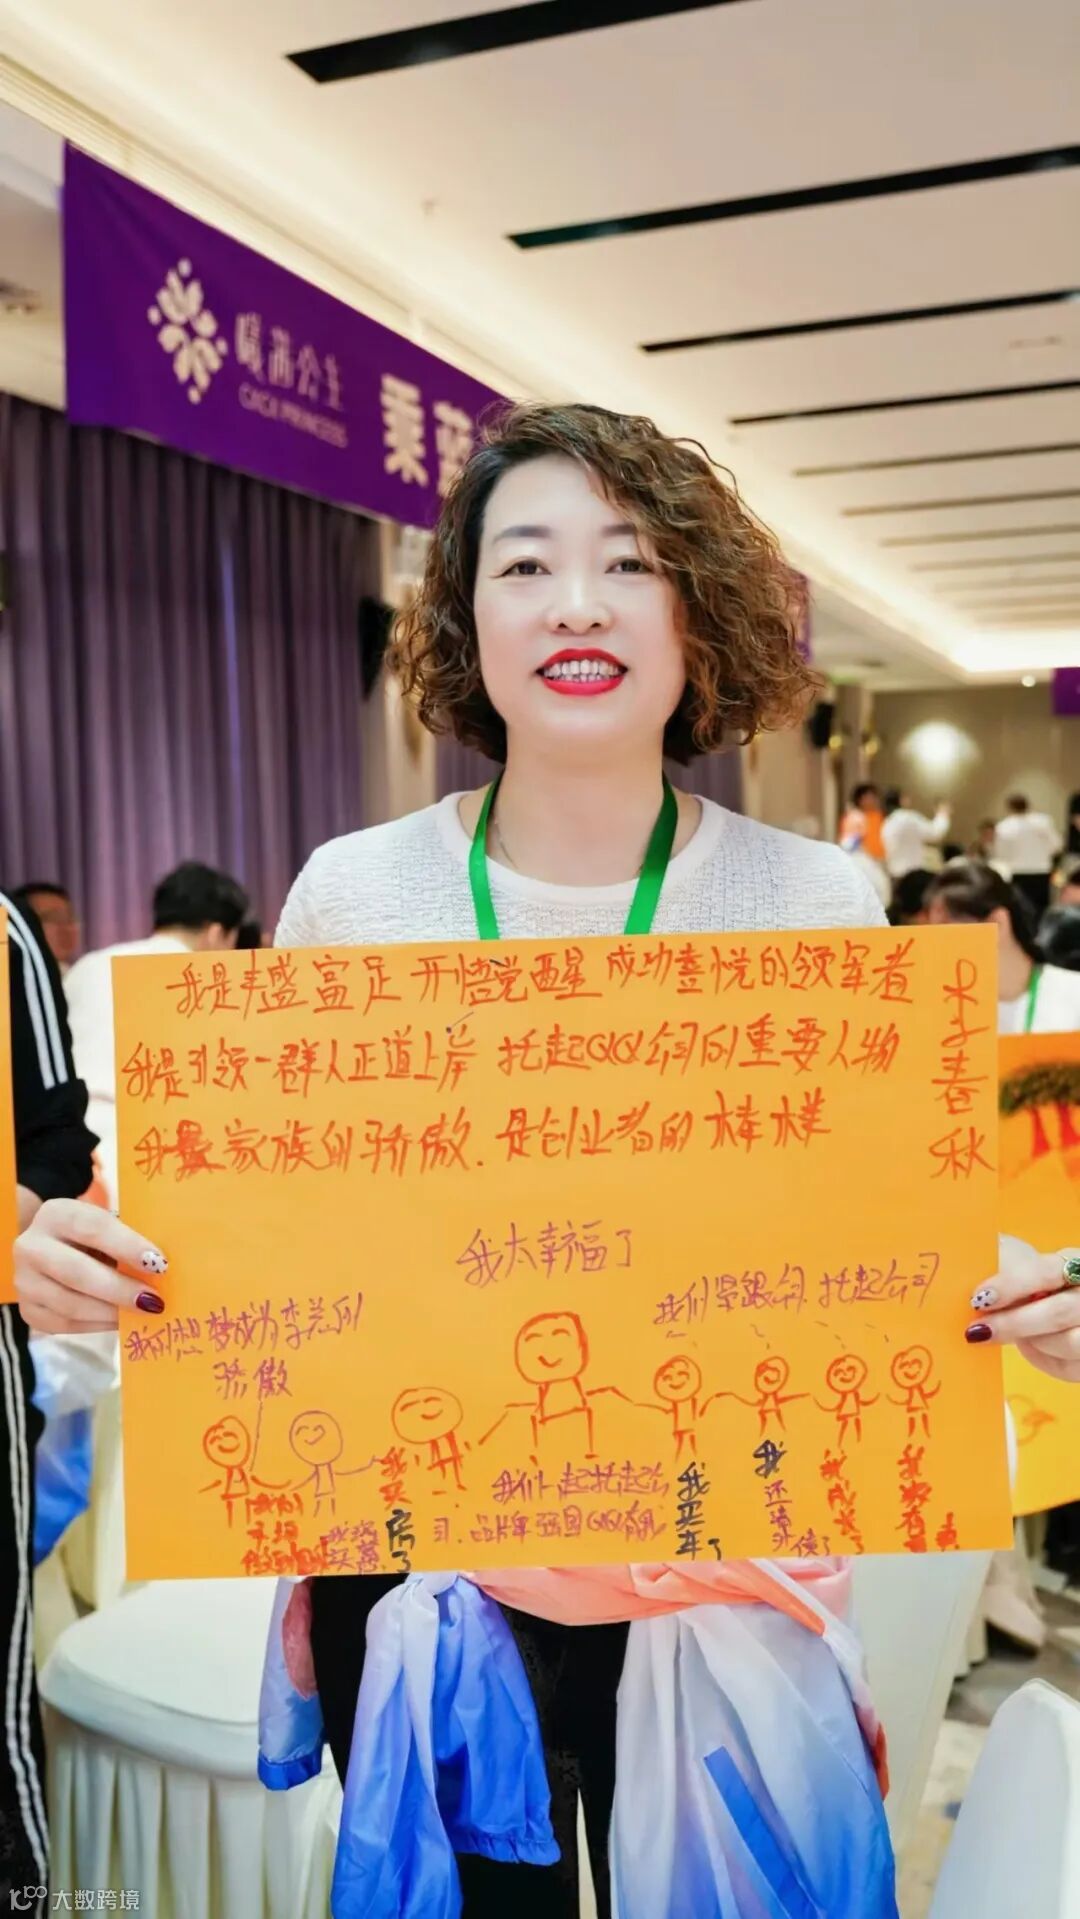 公主
GIGI PRINCESS
秉
我是丰盛富足开悟觉醒成功喜悦的领军者
我是引领一群人正道上岸 托起GIGI公司的重要人物
我是家族的骄傲.是创业者的榜样
李春秋
我太幸福了
我们紧跟公司托起公司
我们想梦成为李总的
骄傲
我们一起托起公
司.品牌强国GIGI有我
我买房了
我买车了
我还清外债了
我成长了
大数跨境